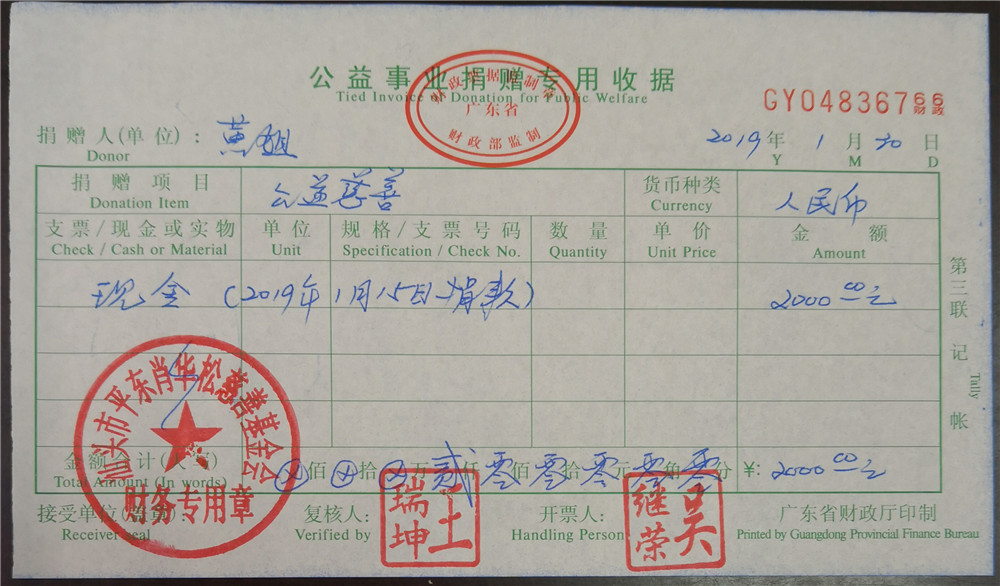 公益事业捐赠专用收据
Tied Invoice of Donation for Public Welfare
财政部监制
广东省
GY04836766
财政
捐赠人(单位):黄姐
Donor
2019年1月30日
Y M D
捐赠项目 公益慈善 货币种类 人民币
Donation Item Currency
支票/现金或实物 单位 规格/支票号码 数量 单价 金额
Check / Cash or Material Unit Specification / Check No. Quantity Unit Price Amount
现金 (2019年1月15日捐款) 2000.00元
第三联 记帐
Tally
汕头市平东肖华松慈善基金会
财务专用章
金额合计(大写) 佰 拾 万贰仟零佰零拾零元零角零分 ¥:2000.00元
Total Amount (In words)
接受单位(盖章): 复核人: 王瑞坤 开票人: 吴继荣 广东省财政厅印制
Receiver Seal Verified by Handling Person Printed by Guangdong Provincial Finance Bureau